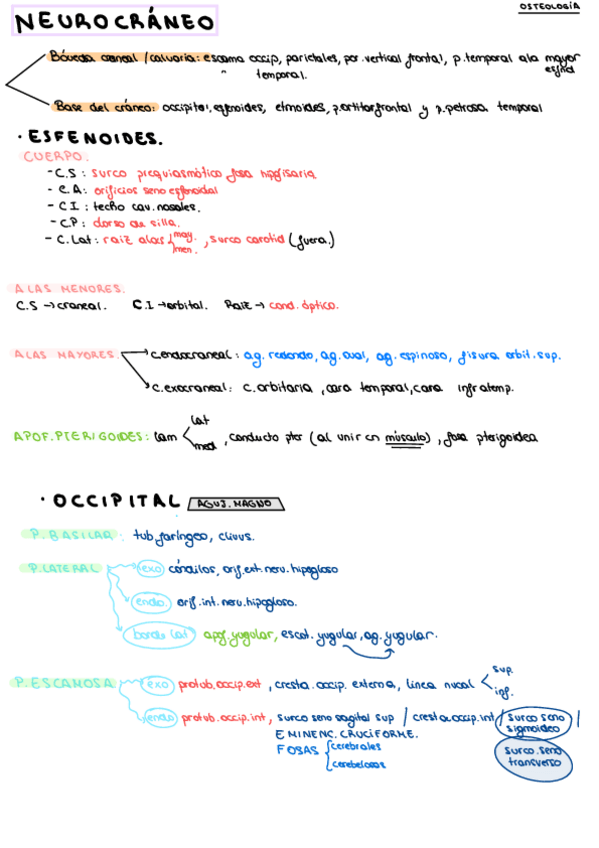 OSTEOLOGÍA
NEUROCRÁNEO
Bóveda craneal /calvaria: escama occip, parietales, por. vertical frontal, p. temporal ala mayor esfnd
temporal.
Base del cráneo: occipital, esfenoides, etmoides, p. orbitar frontal y p. petrosa temporal
· ESFENOIDES.
CUERPO.
- C.S : surco prequiasmático fosa hipfisaria
- C.A : orificios seno esfenoidal
- C I : techo cav. nasales.
- C.P : dorso de silla.
- C. Lat : raiz alas may. men. , surco carotid (fuera.)
ALAS MENORES.
C.S → craneal. C.I → orbital. Raiz → cond. óptico.
ALAS MAYORES. C. endocraneal : ag. redondo, ag. oval, ag. espinoso, fisura orbit. sup.
C. exocraneal : C. orbitaria , cara temporal, cara infratemp.
lat
APOF. PTERIGOIDES : lam , conducto pter (al unir cn músculo) , fosa pterigoidea
med
· OCCIPITAL AGUJ. MAGNO
P. BASILAR : tub. faríngeo, clivus.
P. LATERAL exo cóndilos, orif. ext. nerv. hipogloso
endo orif. int. nerv. hipogloso.
borde lat apof. yugular, escot. yugular, ag. yugular.
sup.
P. ESCAMOSA exo protub. occip. ext , cresta. occip. externa, línea nucal
inf.
endo protub. occip. int , surco seno sagital sup / cresta occip. int / surco seno sigmoideo /
EMINENC. CRUCIFORME.
FOSAS cerebrales
cerebelosas
surco. seno transverso